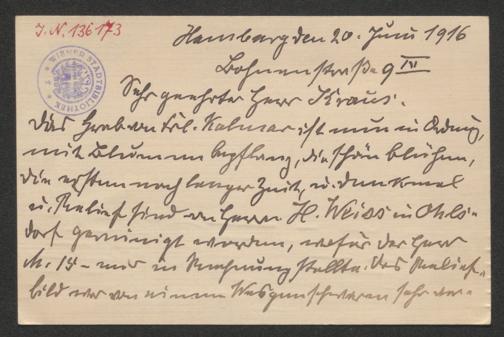 J.N. 136173
WIENER STADTBIBLIOTHEK
Hamburg den 20. Juni 1916
Bohnenstraße 9 IV
Sehr geehrter Herr Kraus.
Das Grab von Frl. Kalmar ist nun in Ordnung,
mit Blumen bepflanzt, die schön blühen,
die ersten nach langer Zeit, u. Denkmal
u. Relief sind von Herrn H. Weiss in Ohls-
dorf gereinigt worden, wofür der Herr
M. 15 – mir in Rechnung stellte. Das Relief-
bild war von einem sehr ver-